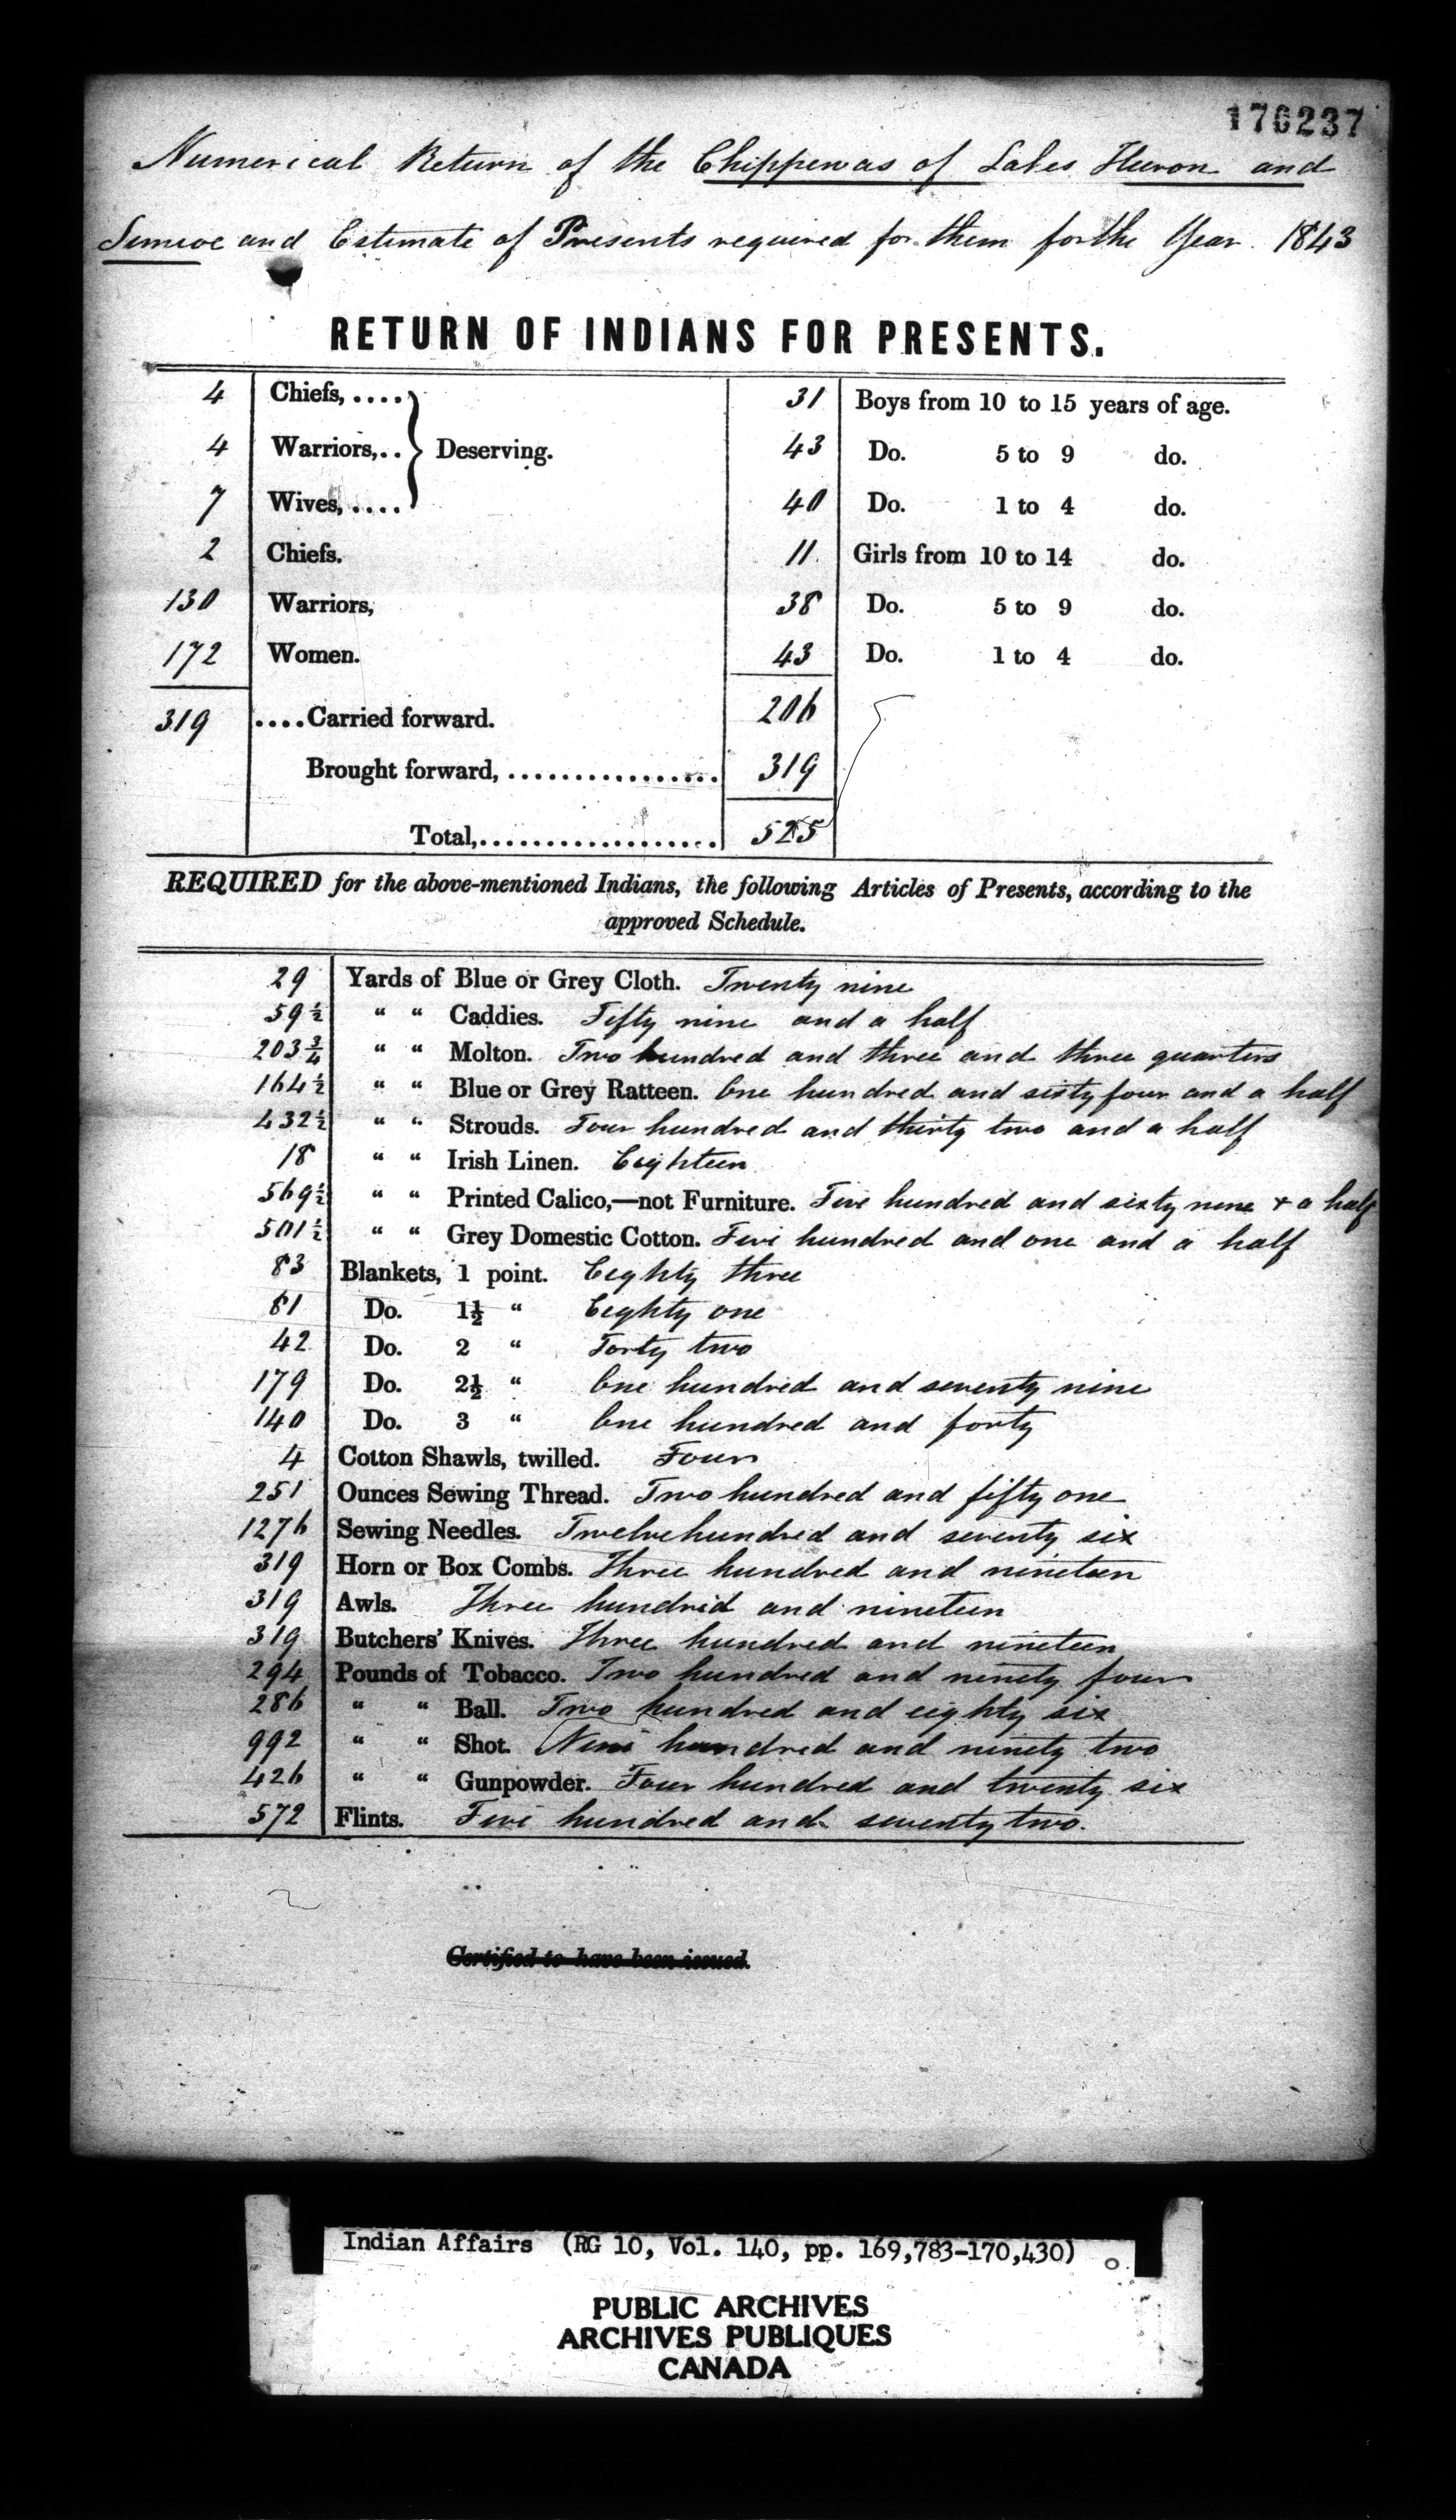 170237
Numerical Return of the Chippewas of Lakes Huron and
Simcoe and Estimate of Presents required for them for the Year 1843
RETURN OF INDIANS FOR PRESENTS.
4 Chiefs, .... 31 Boys from 10 to 15 years of age.
4 Warriors, .. Deserving. 43 Do. 5 to 9 do.
7 Wives, .... 40 Do. 1 to 4 do.
2 Chiefs. 11 Girls from 10 to 14 do.
130 Warriors, 38 Do. 5 to 9 do.
172 Women. 43 Do. 1 to 4 do.
319 ....Carried forward. 206
Brought forward, ................ 319
Total,.................. 525
REQUIRED for the above-mentioned Indians, the following Articles of Presents, according to the
approved Schedule.
29 Yards of Blue or Grey Cloth. Twenty nine
59½ " " Caddies. Fifty nine and a half
203¾ " " Molton. Two hundred and three and three quarters
164½ " " Blue or Grey Ratteen. One hundred and sixty four and a half
432½ " " Strouds. Four hundred and thirty two and a half
18 " " Irish Linen. Eighteen
569½ " " Printed Calico,—not Furniture. Five hundred and sixty nine + a half
501½ " " Grey Domestic Cotton. Five hundred and one and a half
83 Blankets, 1 point. Eighty three
81 Do. 1½ " Eighty one
42 Do. 2 " Forty two
179 Do. 2½ " One hundred and seventy nine
140 Do. 3 " One hundred and forty
4 Cotton Shawls, twilled. Four
251 Ounces Sewing Thread. Two hundred and fifty one
1276 Sewing Needles. Twelve hundred and seventy six
319 Horn or Box Combs. Three hundred and nineteen
319 Awls. Three hundrid and nineteen
319 Butchers' Knives. Three hundred and nineteen
294 Pounds of Tobacco. Two hundred and ninety four
286 " " Ball. Two hundred and eighty six
992 " " Shot. Nine hundred and ninety two
426 " " Gunpowder. Four hundred and twenty six
572 Flints. Five hundred and seventy two.
Certified to have been issued.
Indian Affairs (RG 10, Vol. 140, pp. 169,783-170,430)
PUBLIC ARCHIVES
ARCHIVES PUBLIQUES
CANADA